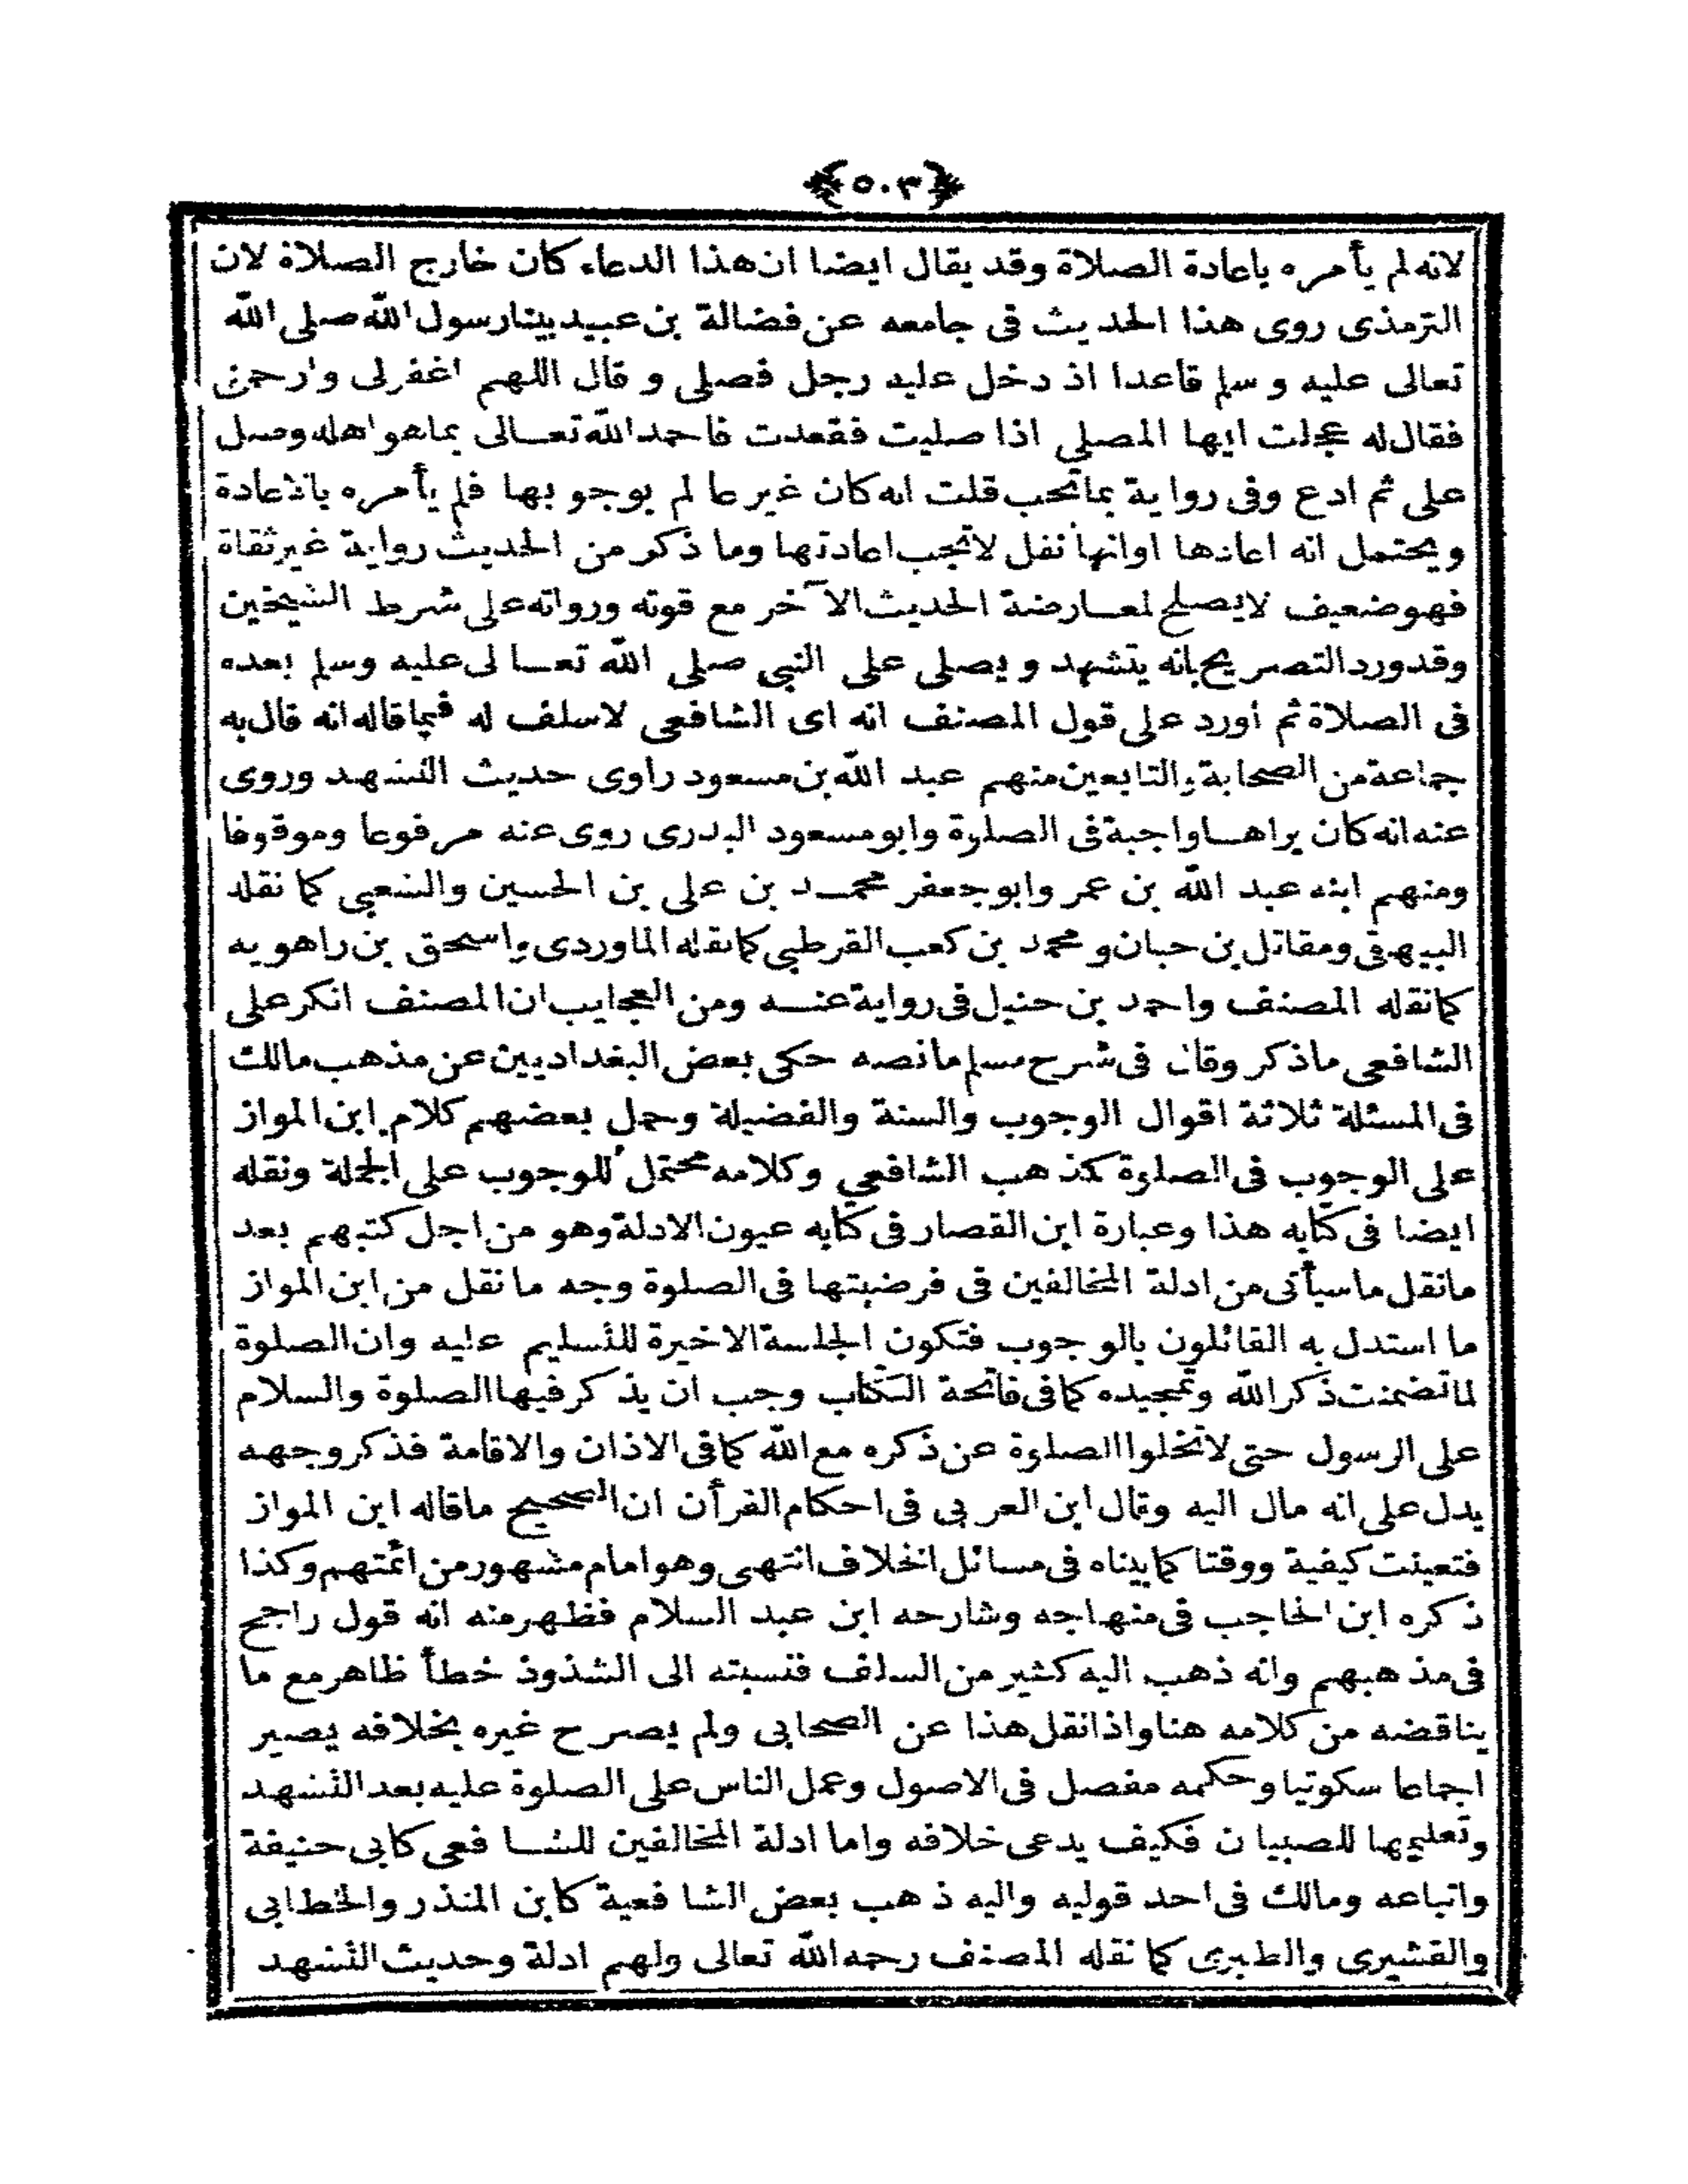 ﴿٥٠٣﴾
لانه لم يأمره باعادة الصلاة وقد يقال ايضا ان هذا الدعاء كان خارج الصلاة لان
الترمذى روى هذا الحديث فى جامعه عن فضالة بن عبيد بينا رسول الله صلى الله
تعالى عليه و سلم قاعدا اذ دخل عليه رجل فصلى و قال اللهم اغفرلى وارحمنى
فقال له عجلت ايها المصلى اذا صليت فقعدت فاحمد الله تعالى بما هو اهله وصل
على ثم ادع وفى رواية بما تحب قلت انه كان غير عا لم بوجو بها فلم يأمره بالاعادة
ويحتمل انه اعادها اوانها نفل لاتجب اعادتها وما ذكر من الحديث رواية غير ثقاة
فهو ضعيف لايصلح لمعارضة الحديث الآخر مع قوته ورواته على شرط الشيخين
وقد ورد التصريح بانه يتشهد و يصلى على النبى صلى الله تعالى عليه وسلم بعده
فى الصلاة ثم أورد على قول المصنف انه اى الشافعى لاسلف له فيما قاله انه قال به
جماعة من الصحابة والتابعين منهم عبد الله بن مسعود راوى حديث التشهد وروى
عنه انه كان يراها واجبة فى الصلوة وابو مسعود البدرى روى عنه مرفوعا وموقوفا
ومنهم ابنه عبد الله بن عمر وابو جعفر محمد بن على بن الحسين والشعبى كما نقله
البيهقى ومقاتل بن حبان و محمد بن كعب القرطبى كما نقله الماوردى واسحق بن راهويه
كما نقله المصنف واحمد بن حنبل فى رواية عنه ومن العجايب ان المصنف انكر على
الشافعى ماذكر وقال فى شرح مسلم ما نصه حكى بعض البغداديين عن مذهب مالك
فى المسئلة ثلاثة اقوال الوجوب والسنة والفضيلة وحمل بعضهم كلام ابن المواز
على الوجوب فى الصلوة كمذهب الشافعى وكلامه محتمل للوجوب على الجملة ونقله
ايضا فى كتابه هذا وعبارة ابن القصار فى كتابه عيون الادلة وهو من اجل كتبهم بعد
مانقل ماسيأتى من ادلة المخالفين فى فرضيتها فى الصلوة وجه ما نقل من ابن المواز
ما استدل به القائلون بالوجوب فتكون الجلسة الاخيرة للتسليم عليه وان الصلوة
لما تضمنت ذكر الله وتمجيده كما فى فاتحة الكتاب وجب ان يذكر فيها الصلوة والسلام
على الرسول حتى لاتخلوا الصلوة عن ذكره مع الله كما فى الاذان والاقامة فذكر وجهه
يدل على انه مال اليه وقال ابن العربى فى احكام القرأن ان الصحيح ماقاله ابن المواز
فتعينت كيفية ووقتا كما بيناه فى مسائل الخلاف انتهى وهو امام مشهور من ائمتهم وكذا
ذكره ابن الحاجب فى منهاجه وشارحه ابن عبد السلام فظهر منه انه قول راجح
فى مذهبهم وانه ذهب اليه كثير من السلف فنسبته الى الشذوذ خطأ ظاهر مع ما
يناقضه من كلامه هنا واذا نقل هذا عن الصحابى ولم يصرح غيره بخلافه يصير
اجماعا سكوتيا وحكمه مفصل فى الاصول وعمل الناس على الصلوة عليه بعد التشهد
وتعليمها للصبيان فكيف يدعى خلافه واما ادلة المخالفين للشافعى كابى حنيفة
واتباعه ومالك فى احد قوليه واليه ذهب بعض الشافعية كابن المنذر والخطابى
والقشيرى والطبرى كما نقله المصنف رحمه الله تعالى ولهم ادلة وحديث التشهد